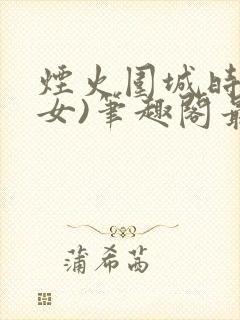 煙火圍城時
女)筆趣閣最
蒲希茜